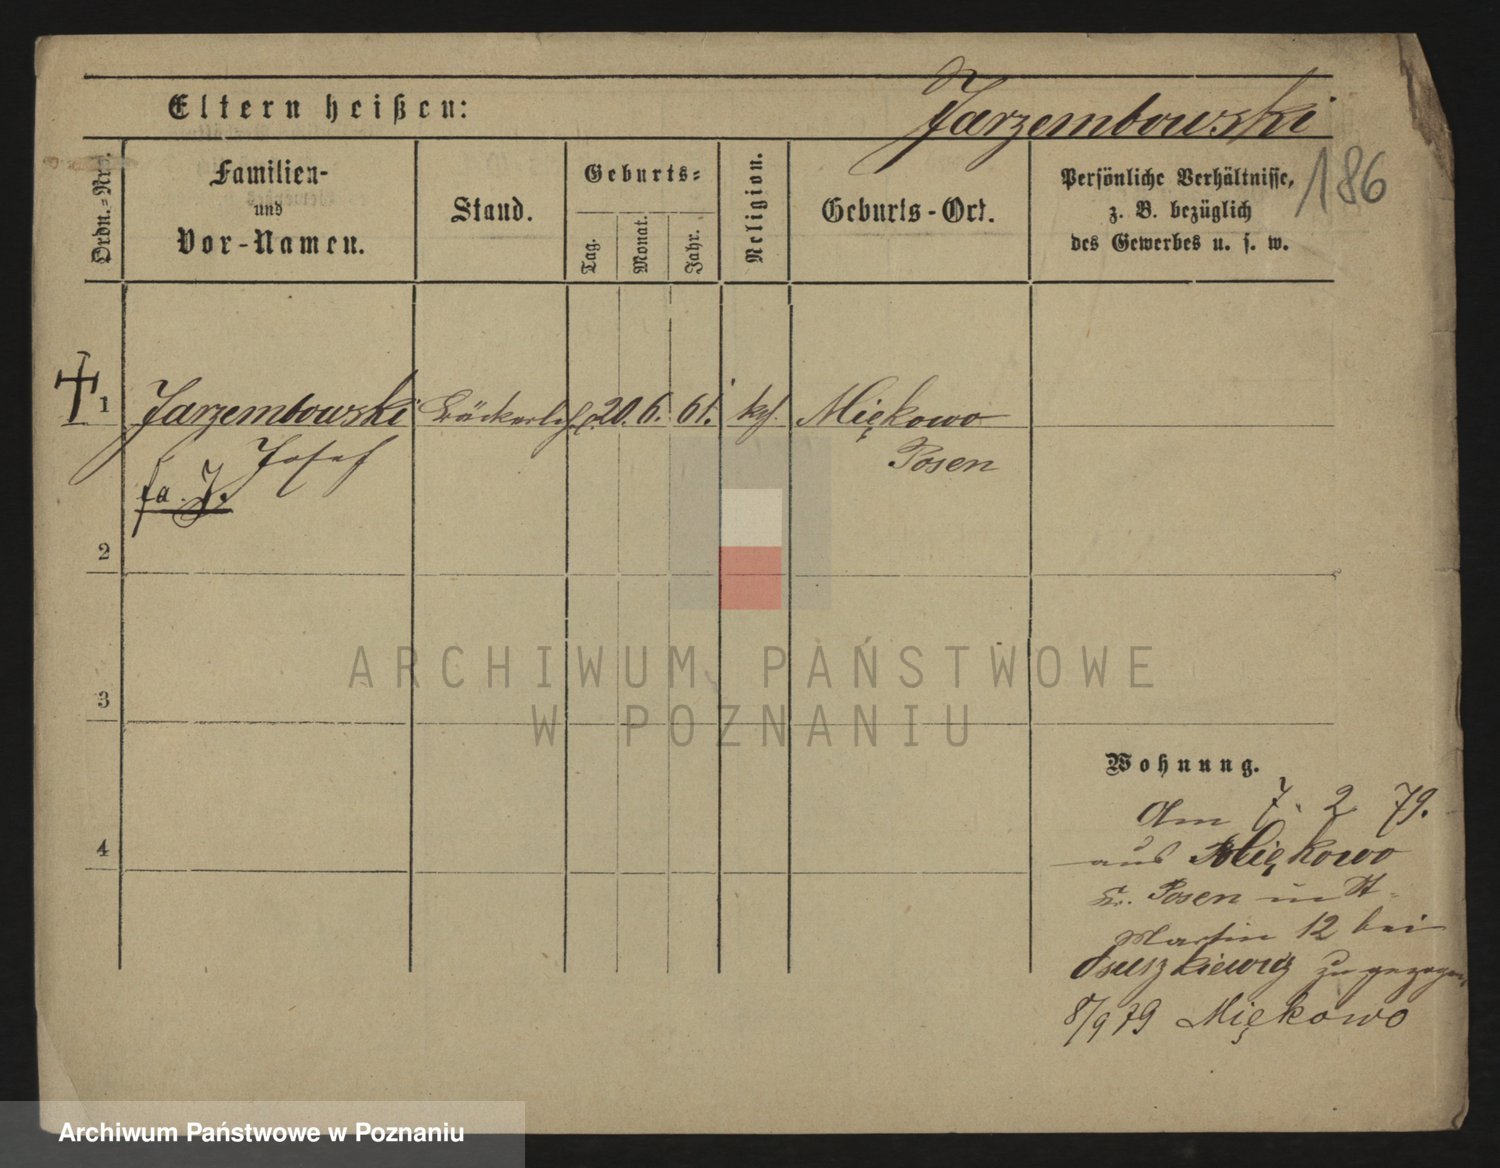 Eltern heißen:
Jarzembowski
186
Ordn.-Nro.
Familien-
und
Vor-Namen.
Stand.
Geburts-
Tag.
Monat.
Jahr.
Religion.
Geburts-Ort.
Persönliche Verhältnisse,
z. B. bezüglich
des Gewerbes u. s. w.
1 Jarzembowski 20. 6. 61. kf. Miękowo
Josef
Posen
fa. J.
2
3
4
ARCHIWUM PAŃSTWOWE
W POZNANIU
Wohnung.
Am 7. 2 79.
aus Miękowo
Kr. Posen in St.
Martin 12 bei
Osuszkiewicz zugezogen
8/9 79 Miękowo
Archiwum Państwowe w Poznaniu